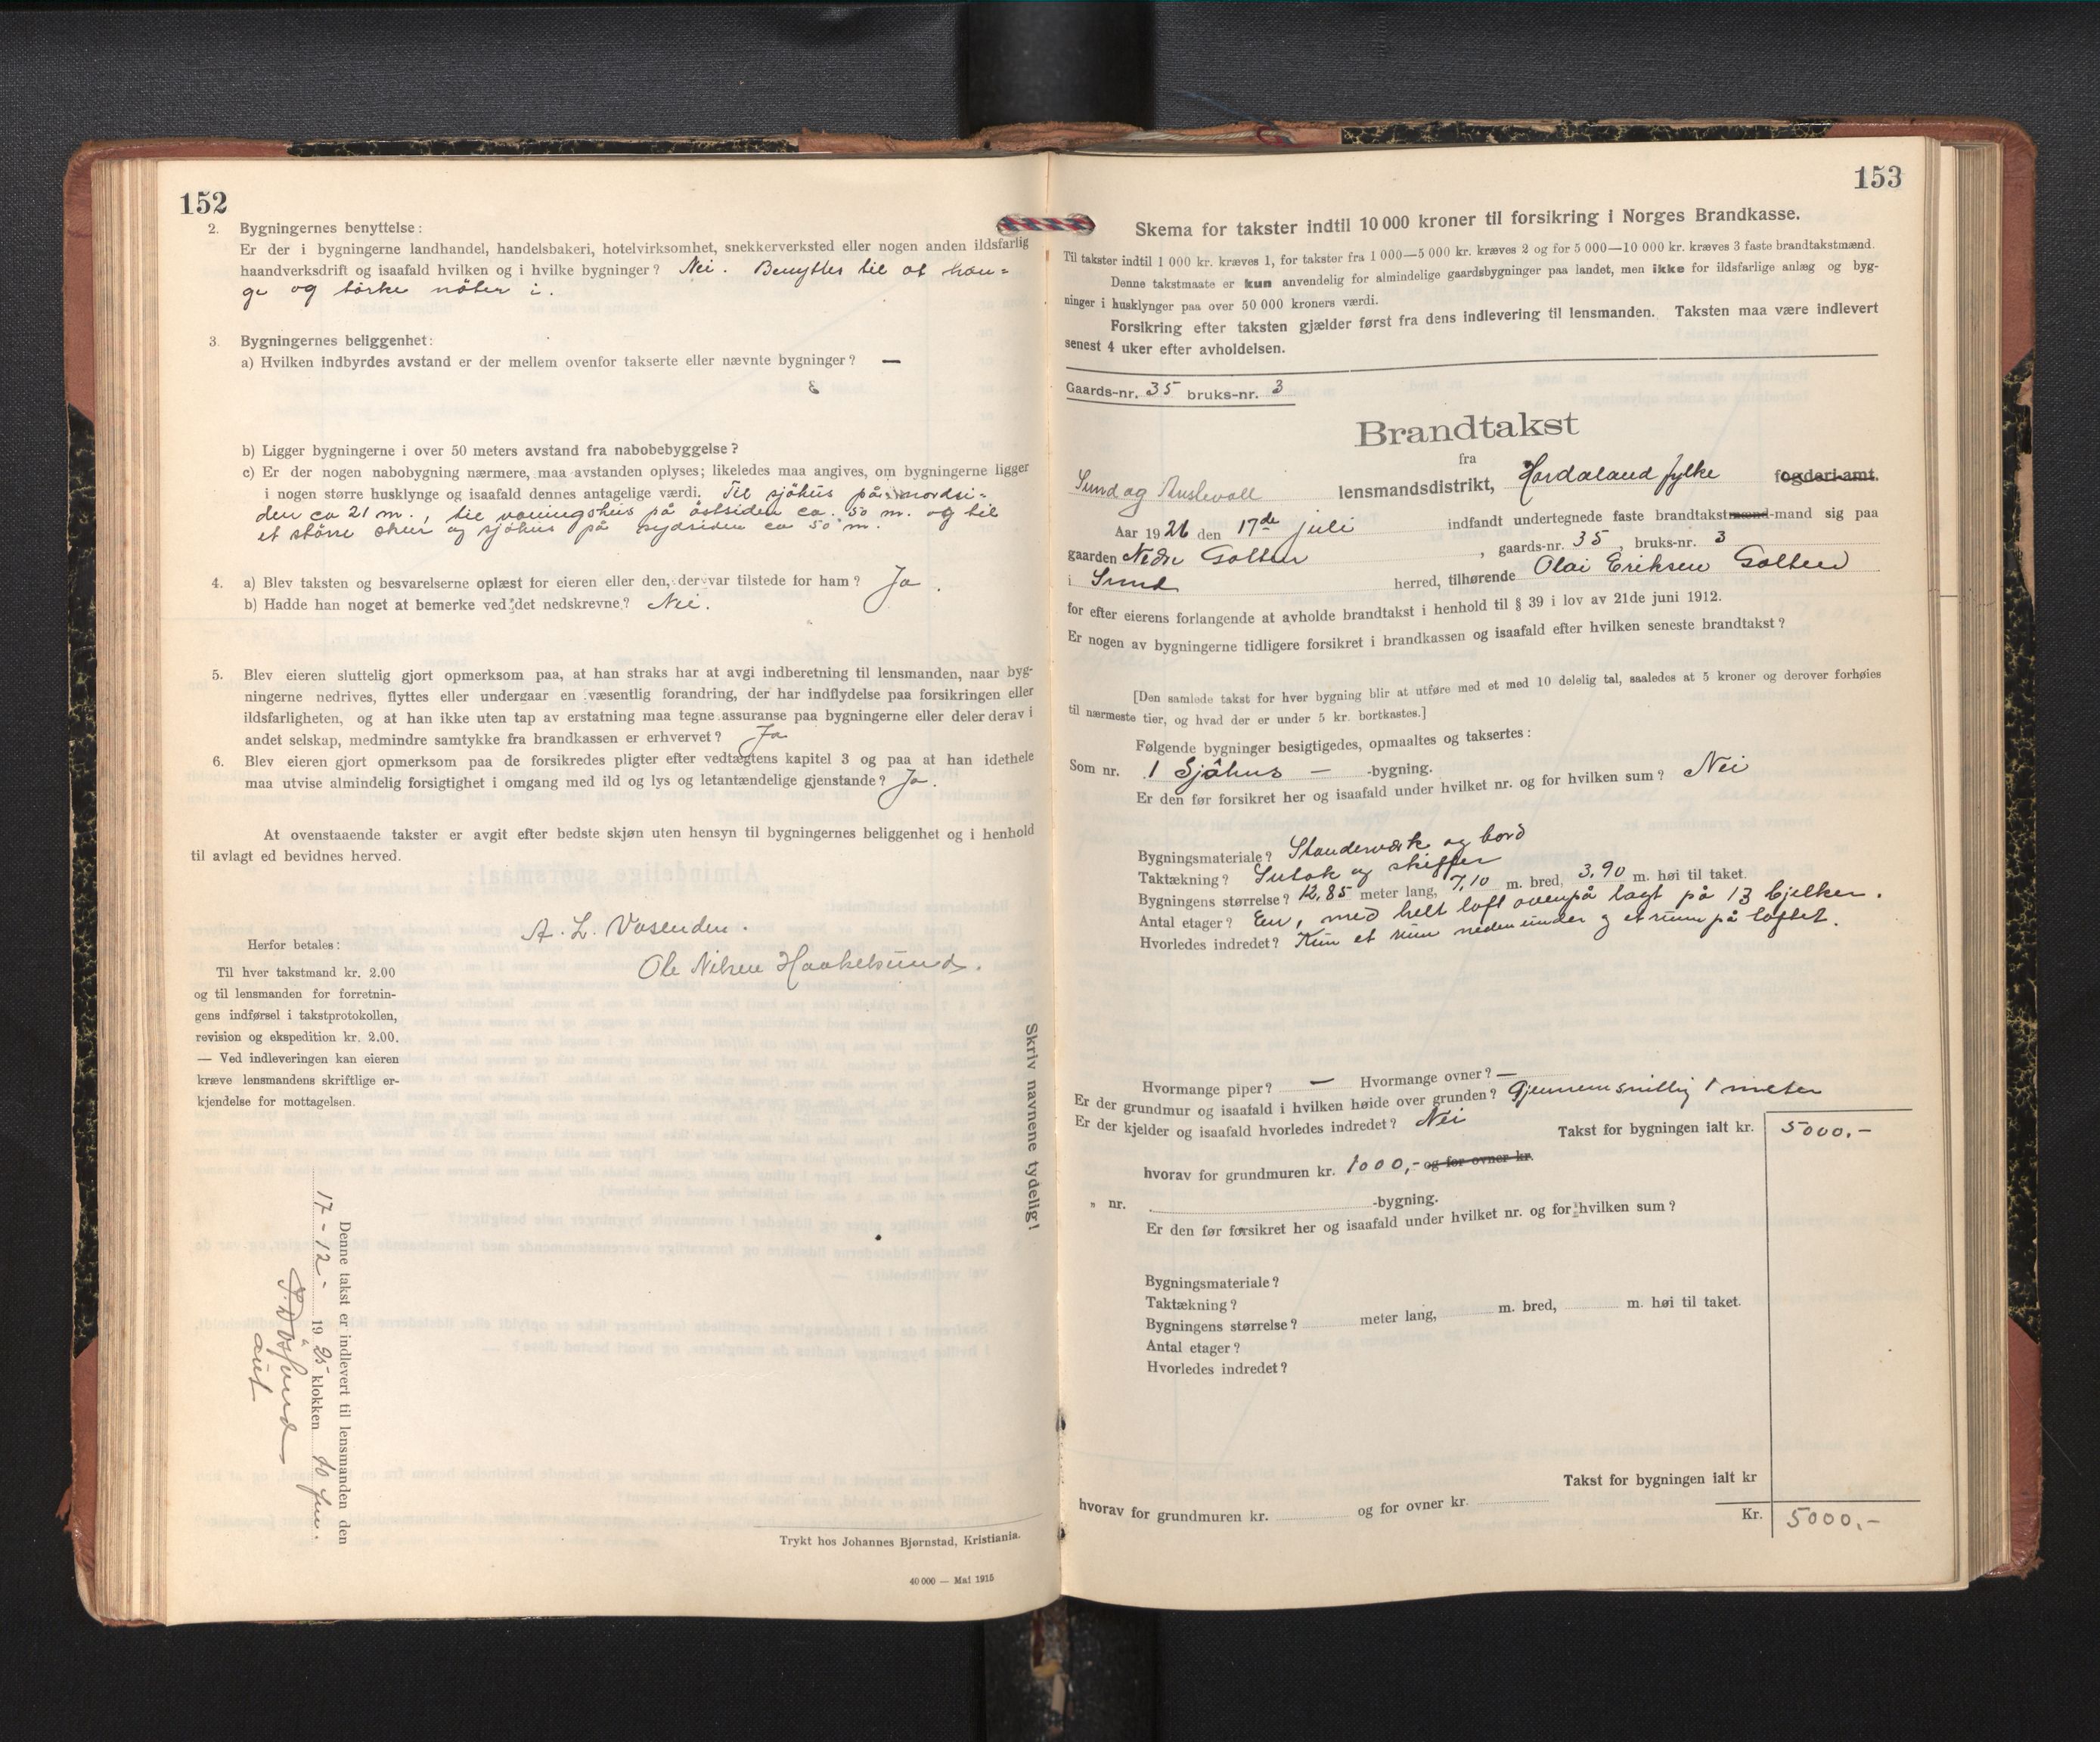 152
2. Bygningernes benyttelse:
Er der i bygningerne landhandel, handelsbakeri, hotelvirksomhet, snekkerverksted eller nogen anden ildsfarlig
haandverksdrift og isaafald hvilken og i hvilke bygninger? Nei. Benyttes til at hæn=
ge og törke nöter i.
3. Bygningernes beliggenhet:
a) Hvilken indbyrdes avstand er der mellem ovenfor takserte eller nævnte bygninger? —
b) Ligger bygningerne i over 50 meters avstand fra nabobebyggelse?
c) Er der nogen nabobygning nærmere, maa avstanden oplyses; likeledes maa angives, om bygningerne ligger
i nogen større husklynge og isaafald dennes antagelige værdi. Til sjöhus på nordsi=
den ca 21 m., til våningshus på östsiden ca. 50 m. og til
et större skur og sjöhus på sydsiden ca 50 m.
4. a) Blev taksten og besvarelserne oplæst for eieren eller den, der var tilstede for ham? Ja.
b) Hadde han noget at bemerke ved det nedskrevne? Nei.
5. Blev eieren sluttelig gjort opmerksom paa, at han straks har at avgi indberetning til lensmanden, naar byg-
ningerne nedrives, flyttes eller undergaar en væsentlig forandring, der har indflydelse paa forsikringen eller
ildsfarligheten, og at han ikke uten tap av erstatning maa tegne assuranse paa bygningerne eller deler derav i
andet selskap, medmindre samtykke fra brandkassen er erhvervet? Ja
6. Blev eieren gjort opmerksom paa de forsikredes pligter efter vedtægtens kapitel 3 og paa at han idethele
maa utvise almindelig forsigtighet i omgang med ild og lys og letantændelige gjenstande? Ja.
At ovenstaaende takster er avgit efter bedste skjøn uten hensyn til bygningernes beliggenhet og i henhold
til avlagt ed bevidnes herved.
A. L. Vasenden.
Ole Nilsen Haakelsund.
Herfor betales:
Til hver takstmand kr. 2.00
og til lensmanden for forretnin-
gens indførsel i takstprotokollen,
revision og ekspedition kr. 2.00.
— Ved indleveringen kan eieren
kræve lensmandens skriftlige er-
kjendelse for mottagelsen.
Skriv navnene tydelig!
Denne takst er indlevert til lensmanden den
17-12- 1925 klokken 10 fm.
Trykt hos Johannes Bjørnstad, Kristiania.
40 000 — Mai 1915
153
Skema for takster indtil 10 000 kroner til forsikring i Norges Brandkasse.
Til takster indtil 1 000 kr. kræves 1, for takster fra 1 000—5 000 kr. kræves 2 og for 5 000—10 000 kr. kræves 3 faste brandtakstmænd.
Denne takstmaate er kun anvendelig for almindelige gaardsbygninger paa landet, men ikke for ildsfarlige anlæg og byg-
ninger i husklynger paa over 50 000 kroners værdi.
Forsikring efter taksten gjælder først fra dens indlevering til lensmanden. Taksten maa være indlevert
senest 4 uker efter avholdelsen.
Gaards-nr. 35 bruks-nr. 3
Brandtakst
fra
Sund og Austevoll lensmandsdistrikt, Hordaland fylke fogderi-amt.
Aar 1926 den 17de juli indfandt undertegnede faste brandtakstmænd-mand sig paa
gaarden Nedre Golten, gaards-nr. 35, bruks-nr. 3
i Sund herred, tilhørende Olai Eriksen Golten
for efter eierens forlangende at avholde brandtakst i henhold til § 39 i lov av 21de juni 1912.
Er nogen av bygningerne tidligere forsikret i brandkassen og isaafald efter hvilken seneste brandtakst?
[Den samlede takst for hver bygning blir at utføre med et med 10 delelig tal, saaledes at 5 kroner og derover forhøies
til nærmeste tier, og hvad der er under 5 kr. bortkastes.]
Følgende bygninger besigtigedes, opmaaltes og taksertes:
Som nr. 1 Sjöhus — -bygning.
Er den før forsikret her og isaafald under hvilket nr. og for hvilken sum? Nei
Bygningsmateriale? Standerværk og bord
Taktækning? Sutak og skiffer
Bygningens størrelse? 12,85 meter lang, 7,10 m. bred, 3,90 m. høi til taket.
Antal etager? En, med helt loft ovenpå lagt på 13 bjelker.
Hvorledes indredet? Kun et rum nedenunder og et rum på loftet.
Hvormange piper? — Hvormange ovner? —
Er der grundmur og isaafald i hvilken høide over grunden? Gjennemsnittlig 1 meter
Er der kjelder og isaafald hvorledes indredet? Nei
Takst for bygningen ialt kr. 5000,-
hvorav for grundmuren kr. 1000,- og for ovner kr.
„ nr. -bygning.
Er den før forsikret her og isaafald under hvilket nr. og for hvilken sum?
Bygningsmateriale?
Taktækning?
Bygningens størrelse? meter lang, m. bred, m. høi til taket.
Antal etager?
Hvorledes indredet?
Takst for bygningen ialt kr
hvorav for grundmuren kr. og for ovner kr.
Kr. 5000,-